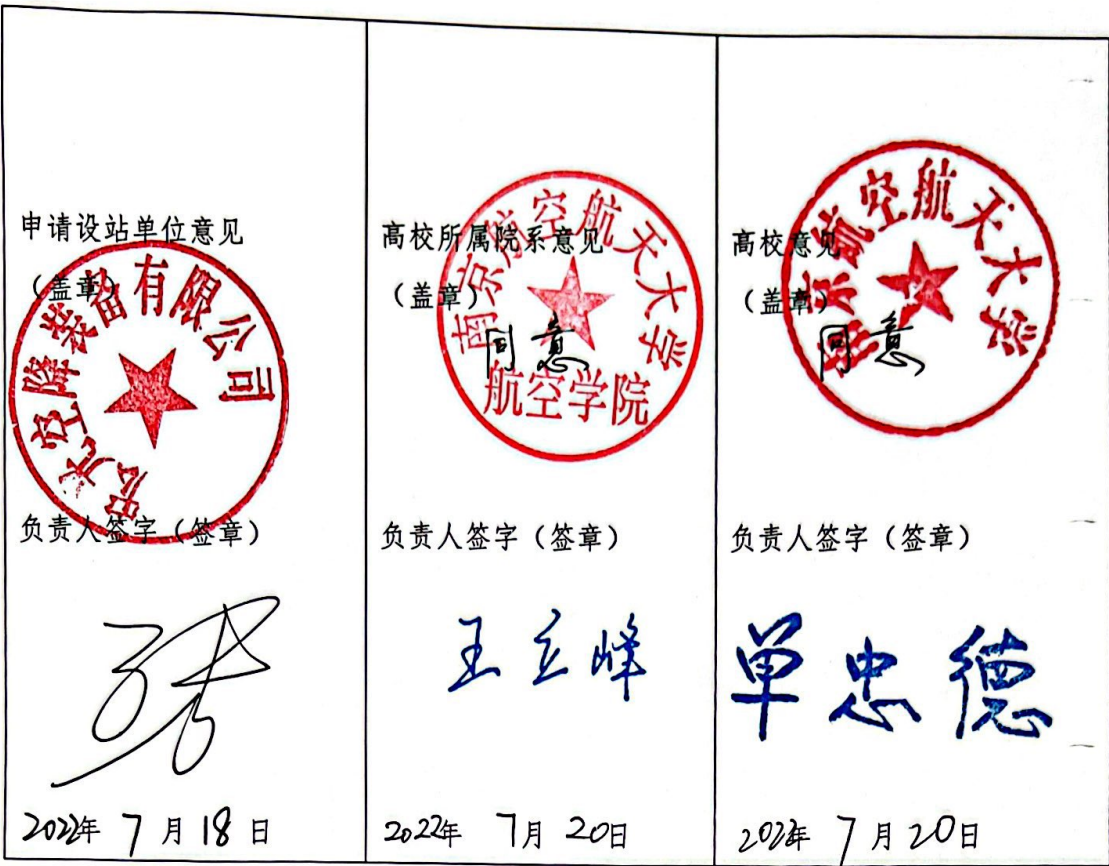 申请设站单位意见
（盖章）
宏光空降装备有限公司
负责人签字（签章）
2022年 7月 18日
高校所属院系意见
（盖章）
南京航空航天大学
同意
航空学院
负责人签字（签章）
王立峰
2022年 7月 20日
高校意见
（盖章）
南京航空航天大学
同意
负责人签字（签章）
单忠德
2022年 7月 20日